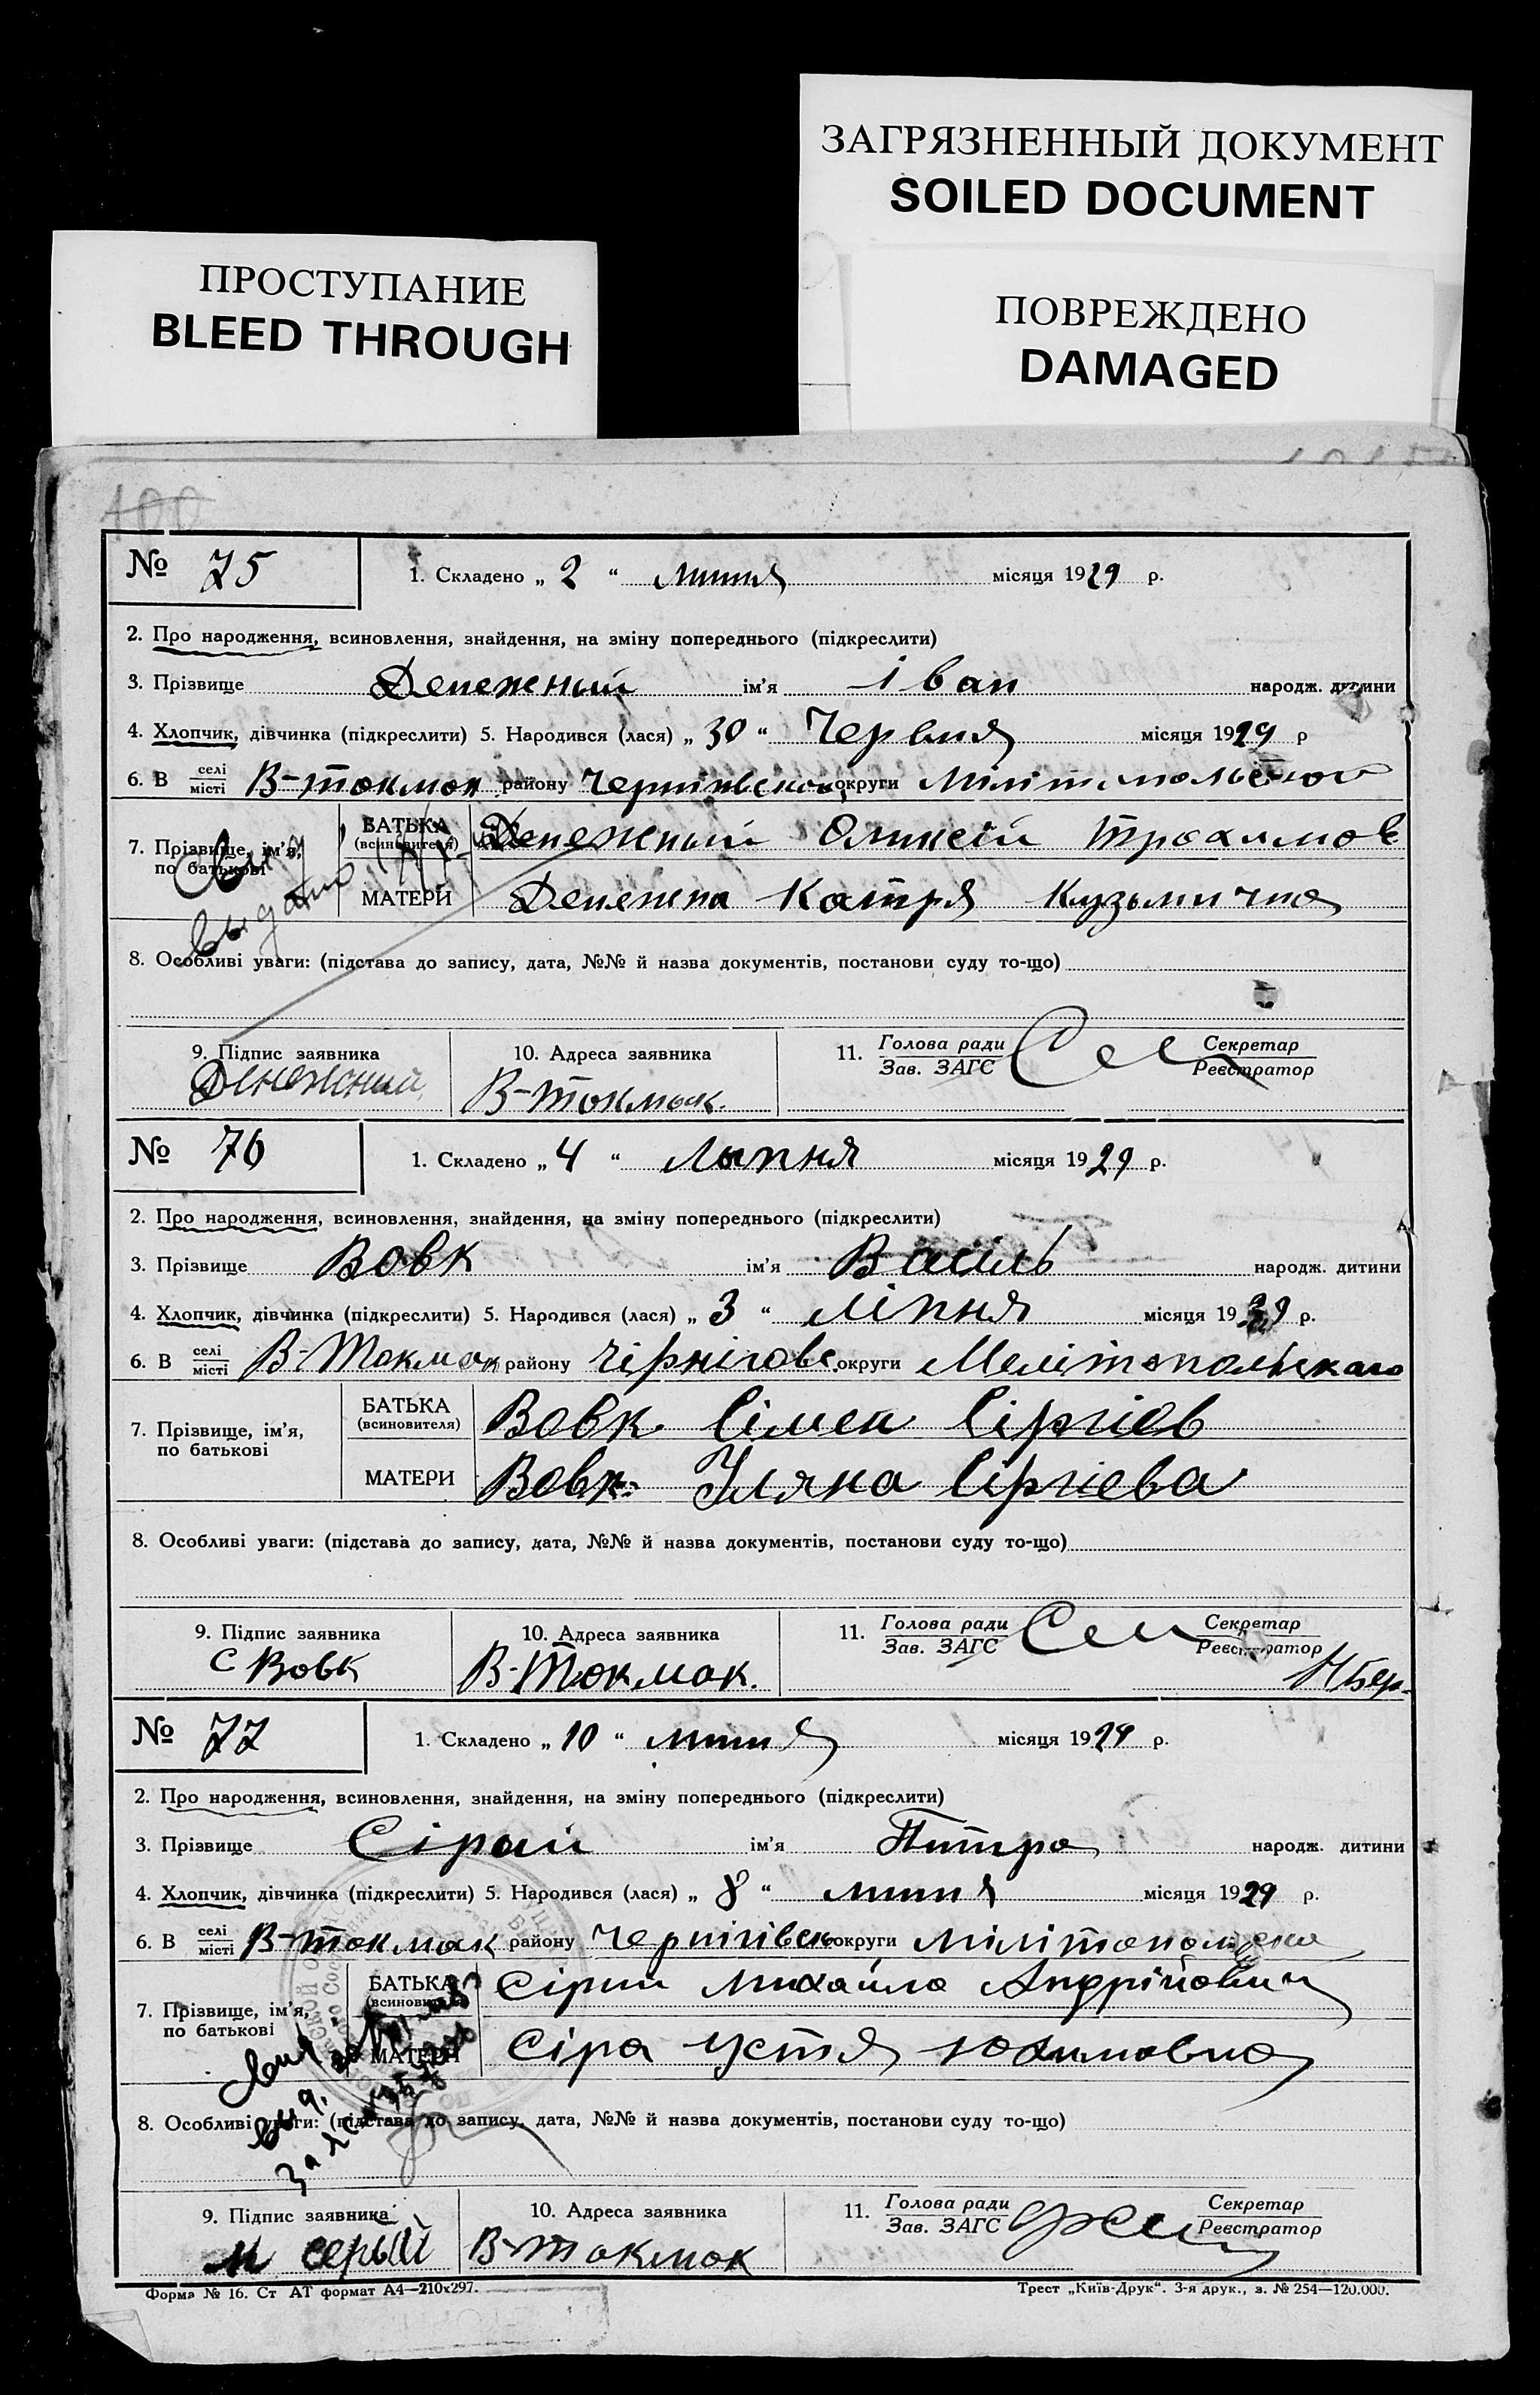 ЗАГРЯЗНЕННЫЙ ДОКУМЕНТ
SOILED DOCUMENT
ПРОСТУПАНИЕ
BLEED THROUGH
ПОВРЕЖДЕНО
DAMAGED
100
№ 75 1. Складено „ 2 “ липня місяця 1929 р.
2. Про народження, всиновлення, знайдення, на зміну попереднього (підкреслити)
3. Прізвище Денежный ім'я Іван народж. дитини
4. Хлопчик, дівчинка (підкреслити) 5. Народився (лася) „ 30 “ Червня місяця 1929 р
6. В селі місті В-токмак району округи
7. Прізвище, ім'я, по батькові
БАТЬКА (всиновителя) Денежный Олексій Трохимов
МАТЕРИ Денежна Катря Кузьмична
8. Особливі уваги: (підстава до запису, дата, №№ й назва документів, постанови суду то-що)
9. Підпис заявника 10. Адреса заявника 11. Голова ради Зав. ЗАГС Секретар Реєстратор
Денежний В-токмак.
№ 76 1. Складено „ 4 “ Лыпня місяця 1929 р.
2. Про народження, всиновлення, знайдення, на зміну попереднього (підкреслити)
3. Прізвище Вовк ім'я Василь народж. дитини
4. Хлопчик, дівчинка (підкреслити) 5. Народився (лася) „ 3 “ Ліпня місяця 1929 р.
6. В селі місті В-Токмак району Чірніговс. округи Мелітопольскаго
7. Прізвище, ім'я, по батькові
БАТЬКА (всиновителя) Вовк Сімен Сіргіев
МАТЕРИ Вовк Уляна Сіргіева
8. Особливі уваги: (підстава до запису, дата, №№ й назва документів, постанови суду то-що)
9. Підпис заявника 10. Адреса заявника 11. Голова ради Зав. ЗАГС Секретар Реєстратор
С Вовк В-Токмак.
№ 77 1. Складено „ 10 “ липня місяця 1929 р.
2. Про народження, всиновлення, знайдення, на зміну попереднього (підкреслити)
3. Прізвище Сірий ім'я Петро народж. дитини
4. Хлопчик, дівчинка (підкреслити) 5. Народився (лася) „ 8 “ липня місяця 1929 р.
6. В селі місті В-токмак району Чернігівськ округи
7. Прізвище, ім'я, по батькові
БАТЬКА (всиновителя) Сірий Михайло Андрійович
МАТЕРИ Сіра Устя Юхимовна
8. Особливі уваги: (підстава до запису, дата, №№ й назва документів, постанови суду то-що)
9. Підпис заявника 10. Адреса заявника 11. Голова ради Зав. ЗАГС Секретар Реєстратор
М серый В-токмак
Форма № 16. Ст АТ формат А4—210х297. Трест „Київ-Друк“. 3-я друк., з. № 254—120.000.